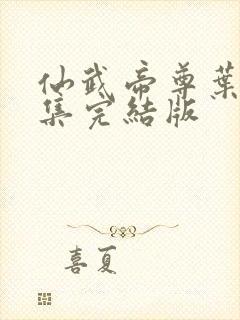 仙武帝尊葉
集完結版
喜夏